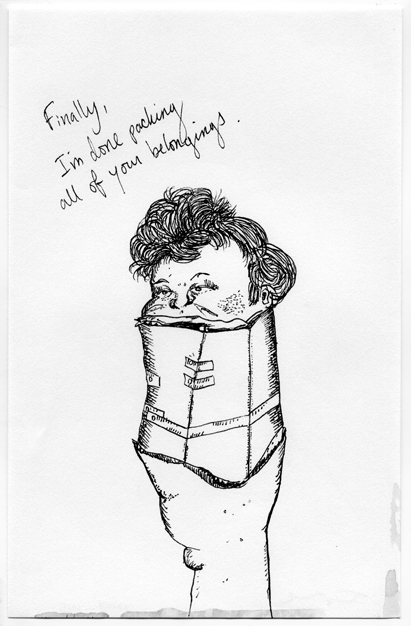 Finally,
I'm done packing
all of your belongings.